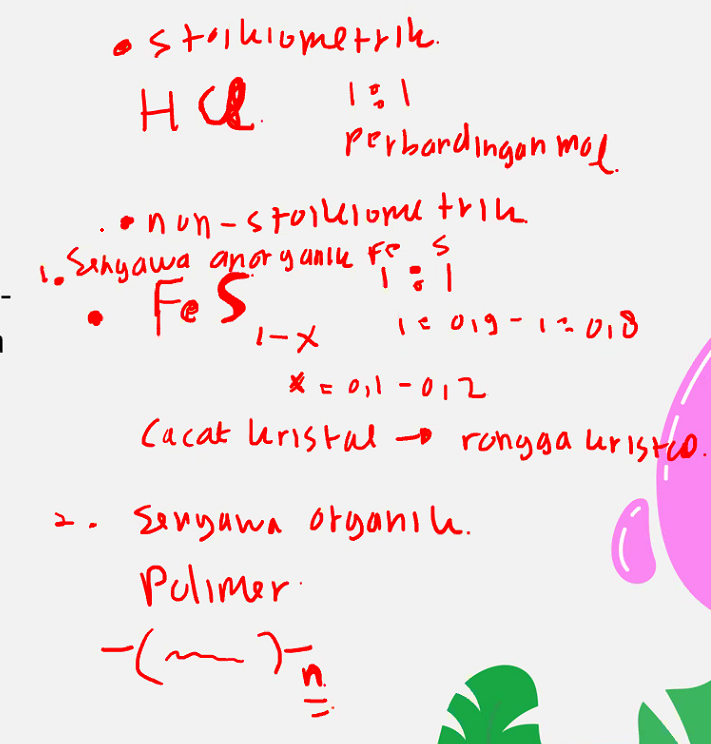 • stoikiometrik.
HCl. 1:1
perbandingan mol.
• non-stoikiometrik
1. Senyawa anorganik Fe S
1 : 1
• FeS1-x 1:0,9 - 1:0,8
x = 0,1 - 0,2
Cacat kristal → rongga kristal.
2. Senyawa organik.
Polimer.
-( )-n